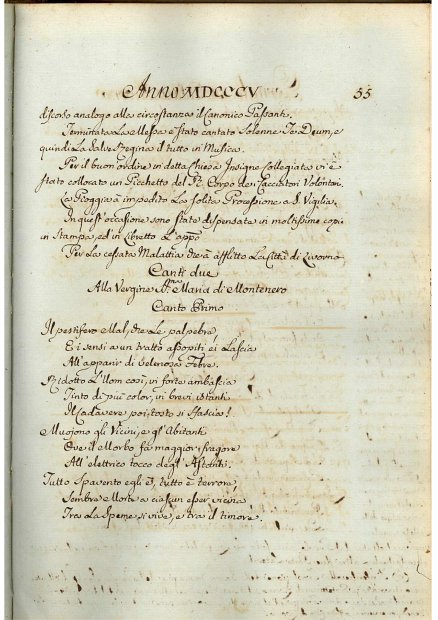 Anno MDCCCV 55
discorso analogo alla circostanza il Canonico Passanti.
Terminata La Messa è stato cantato Solenne Te Deum, e
quindi La Salve Regina il tutto in Musica.
Per il buon ordine in detta Chiesa Insigne Collegiata vi è
stato collocato un Picchetto del R. Corpo dei Cacciatori Volontari.
La Pioggia à impedito La solita Processione a S. Vigilia.
In quest'occasione sono state dispensate in moltissime copie
in stampa, ed in Libretto L'app.
Per La cessata Malattia che à afflitto La Città di Livorno
Canti due
Alla Vergine Maria di Montenero
Canto Primo
Il pestifero Mal, che Le palpebra
E i sensi a un tratto assopiti ei Lascia
All'apparir di velenosa Febre.
Ridotto L'Uom così, in forte ambascia
Tinto di più color, in brevi istanti
Il Cadavere poi, tosto si fascia!
Muojono gli Vicini, e gl'Abitanti
Ove il Morbo fa maggior fragore
All'elettrico tocco degl'Astanti.
Tutto spavento egli è, tutto è terrore
Sembra Morte a ciascun esser vicina
Tra La Speme si vive, e tra il timore.